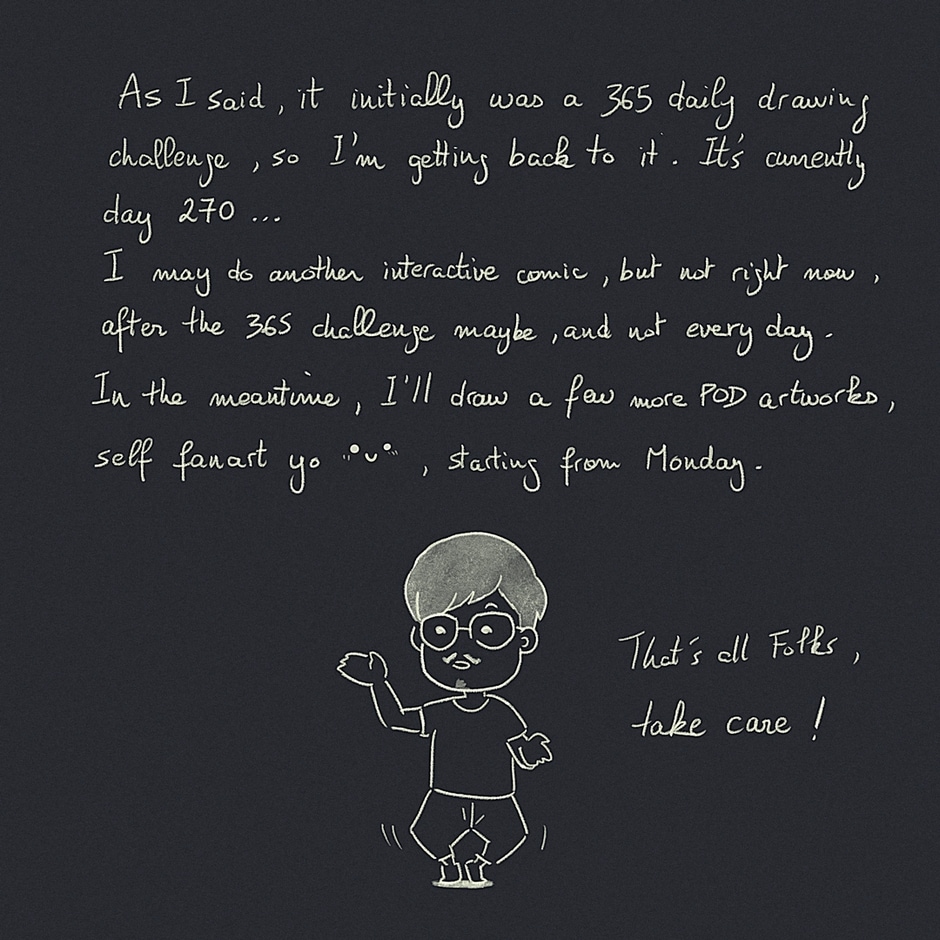 As I said, it initially was a 365 daily drawing
challenge, so I'm getting back to it. It's currently
day 270 ...
I may do another interactive comic, but not right now,
after the 365 challenge maybe, and not every day.
In the meantime, I'll draw a few more POD artworks,
self fanart yo , starting from Monday.
That's all Folks,
take care!